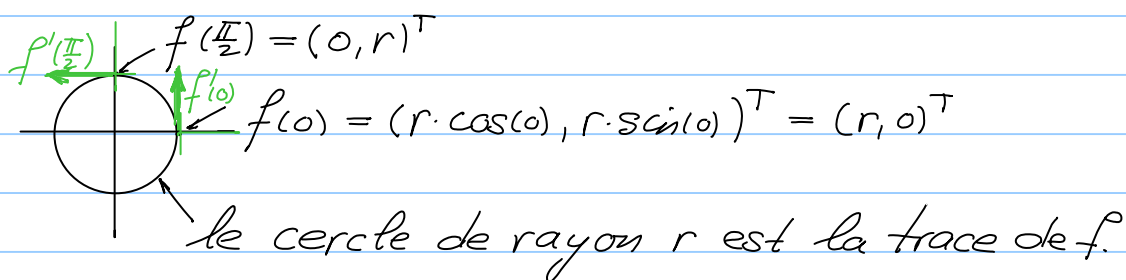 f(π/2) = (0, r)ᵀ
f'(π/2)
f'(0)
f(0) = (r · cos(0), r · sin(0))ᵀ = (r, 0)ᵀ
le cercle de rayon r est la trace de f.